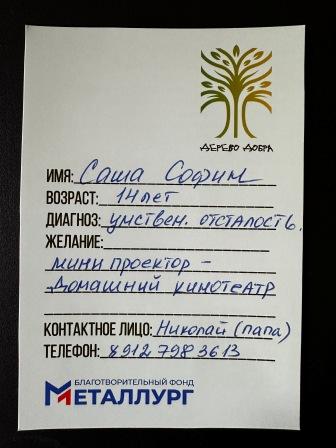 ДЕРЕВО ДОБРА
ИМЯ: Саша Софин
ВОЗРАСТ: 14 лет
ДИАГНОЗ: умствен. отсталость.
ЖЕЛАНИЕ:
мини проектор -
домашний кинотеатр
КОНТАКТНОЕ ЛИЦО: Николай (папа)
ТЕЛЕФОН: 8912 798 3613
БЛАГОТВОРИТЕЛЬНЫЙ ФОНД
МЕТАЛЛУРГ